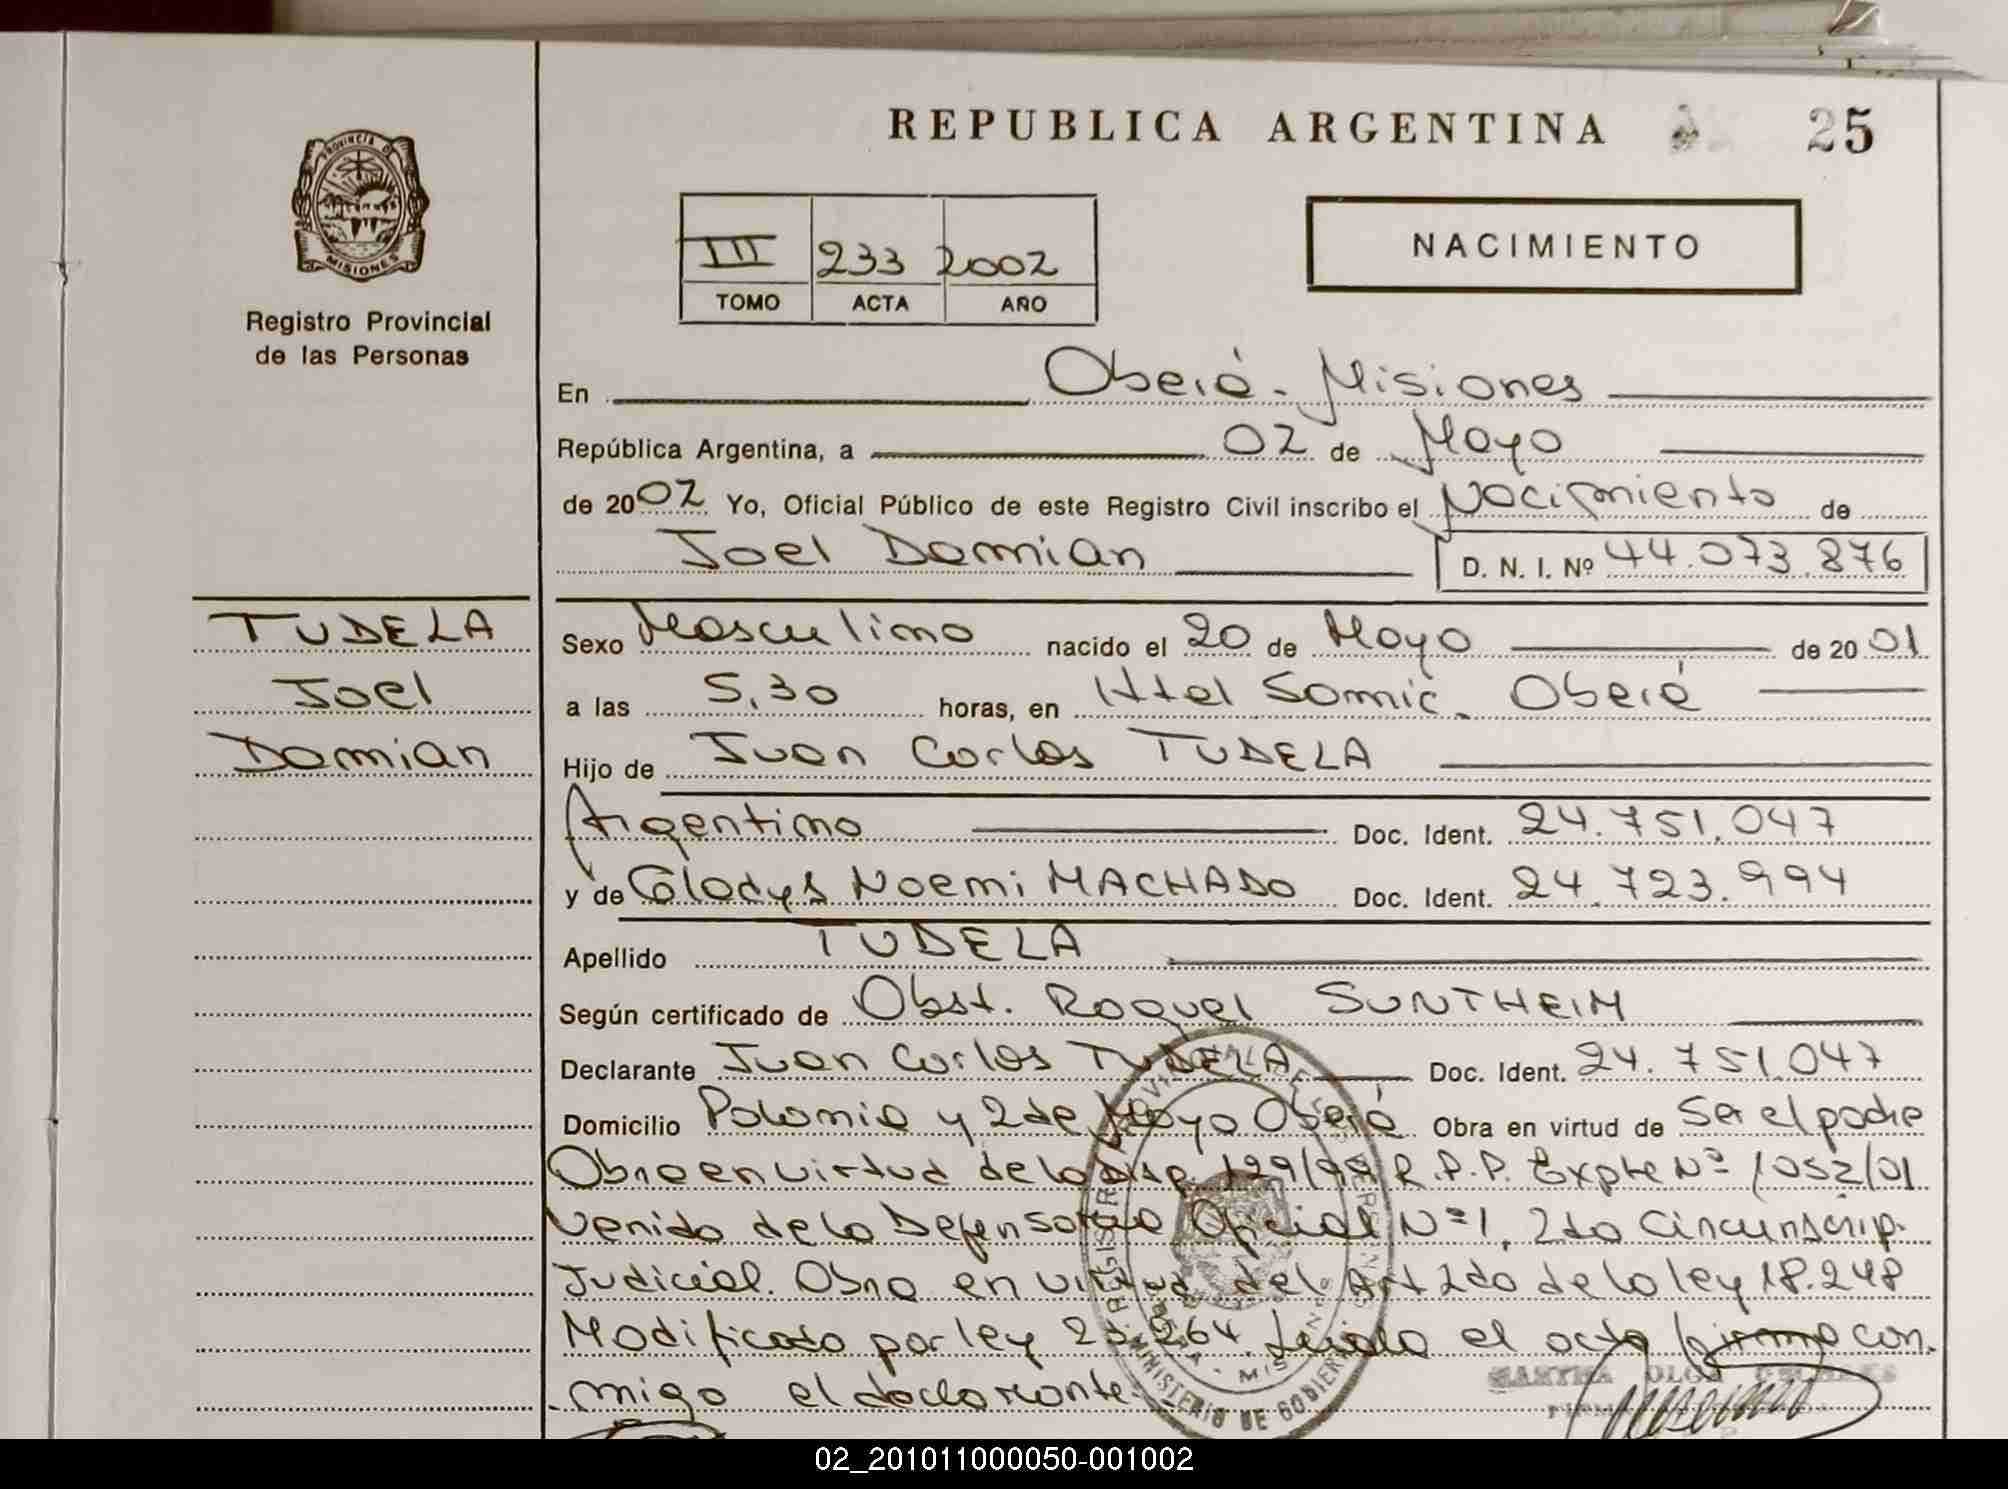 REPUBLICA ARGENTINA 25
PROVINCIA DE
MISIONES
Registro Provincial
de las Personas
NACIMIENTO
III 233 2002
TOMO ACTA AÑO
En Oberá - Misiones
República Argentina, a 02 de Mayo
de 2002 Yo, Oficial Público de este Registro Civil inscribo el Nacimiento de
Joel Damian D. N. I. Nº 44.073.876
TUDELA
Joel
Damian
Sexo Masculino nacido el 20 de Mayo de 2001
a las 5,30 horas, en Htal Samic. Oberá
Hijo de Juan Carlos TUDELA
Argentino Doc. Ident. 24.751.047
y de Gladys Noemi MACHADO Doc. Ident. 24.723.994
Apellido TUDELA
Según certificado de Obst. Raquel SUNTHEIM
Declarante Juan Carlos TUDELA Doc. Ident. 24.751.047
Domicilio Polonia y 2 de Mayo Oberá Obra en virtud de Ser el padre
Obra en virtud de la Disp. 129/99 R.P.P. Expte Nº 1052/01
venido de la Defensoría Oficial Nº 1, 2da Circunscrip.
Judicial. Obra en virtud del Art 2do de la ley 18.248
Modificado por ley 23.264. Leida el acta firma con
migo el declarante.
MINISTERIO DE GOBIERNO
MARTHA OLGA
02_201011000050-001002